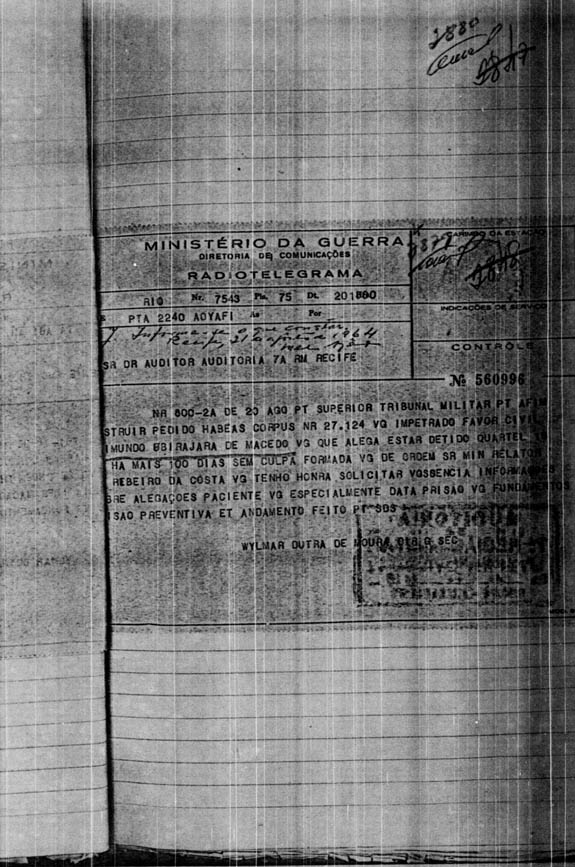 2880
MINISTÉRIO DA GUERRA
DIRETORIA DE COMUNICAÇÕES
RADIOTELEGRAMA
CARIMBO DA ESTAÇÃO
RIO Nr. 7543 Pls. 75 Dt. 201800
PTA 2240 AOYAFI As Por
INDICAÇÕES DE SERVIÇO
Recife, 21 agosto 1964
CONTRÔLE
SR DR AUDITOR AUDITORIA 7A RM RECIFE
Nº 560996
NR 600-2A DE 20 AGO PT SUPERIOR TRIBUNAL MILITAR PT AFIM
STRUIR PEDIDO HABEAS CORPUS NR 27.124 VG IMPETRADO FAVOR CIVIL
IMUNDO UBIRAJARA DE MACEDO VG QUE ALEGA ESTAR DETIDO QUARTEL
HA MAIS 100 DIAS SEM CULPA FORMADA VG DE ORDEM SR MIN RELATOR
RIBEIRO DA COSTA VG TENHO HONRA SOLICITAR VOSSENCIA INFORMAÇÕES
BRE ALEGAÇOES PACIENTE VG ESPECIALMENTE DATA PRISÃO VG FUNDAMENTOS
ISAO PREVENTIVA ET ANDAMENTO FEITO PT SDS
WYLMAR DUTRA DE MOURA DIR G SEC